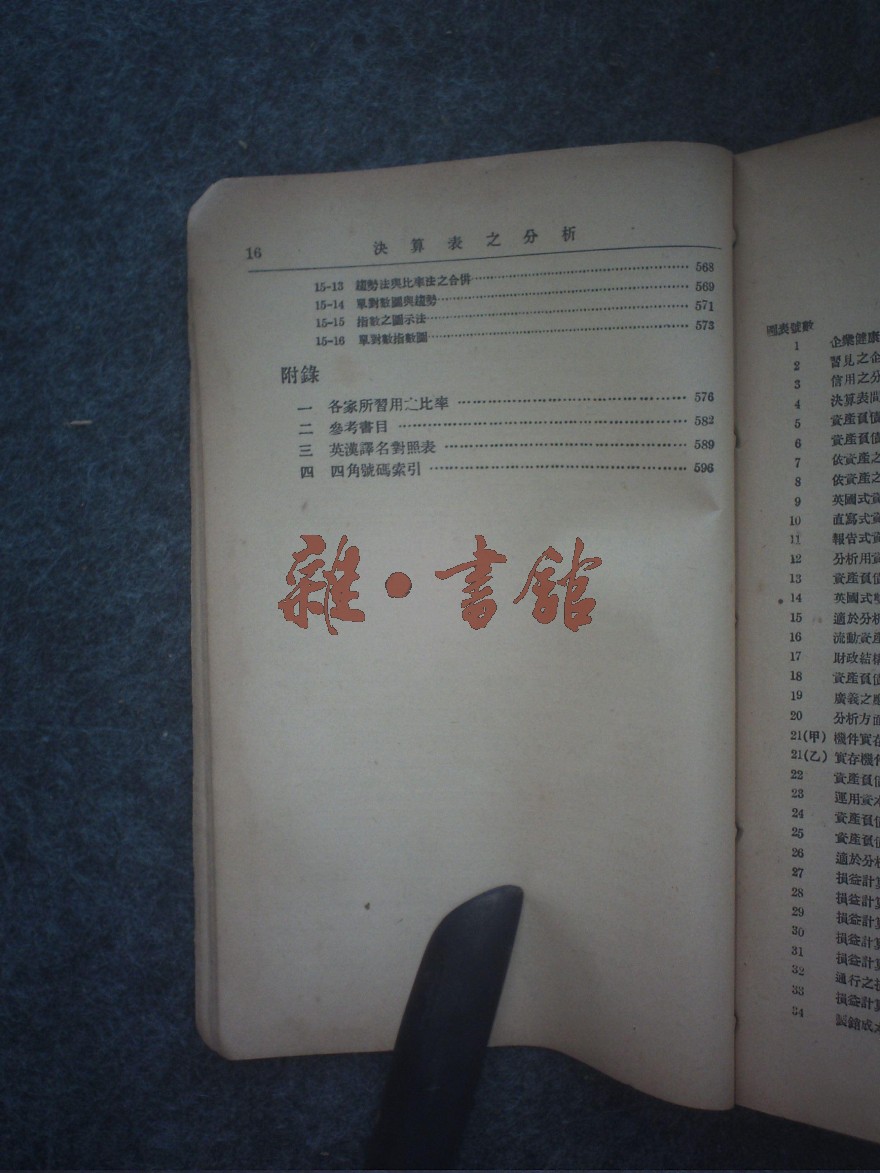 16 決算表之分析
15-13 趨勢法與比率法之合併 568
15-14 單對數圖與趨勢 569
15-15 指數之圖示法 571
15-16 單對數指數圖 573
附錄
一 各家所習用之比率 576
二 參考書目 582
三 英漢譯名對照表 589
四 四角號碼索引 596
雜·書館
圖表號數
1 企業健康
2 習見之企
3 信用之分
4 決算表間
5 資產負債
6 資產負債
7 依資產之
8 依資產之
9 英國式資
10 直寫式資
11 報告式資
12 分析用資
13 資產負債
14 英國式雙
15 適於分析
16 流動資產
17 財政結構
18 資產負債
19 廣義之應
20 分析方面
21(甲) 機件實存
21(乙) 實存機件
22 資產負債
23 運用資本
24 資產負債
25 資產負債
26 適於分析
27 損益計算
28 損益計算
29 損益計算
30 損益計算
31 損益計算
32 通行之損
33 損益計算
34 製銷成本